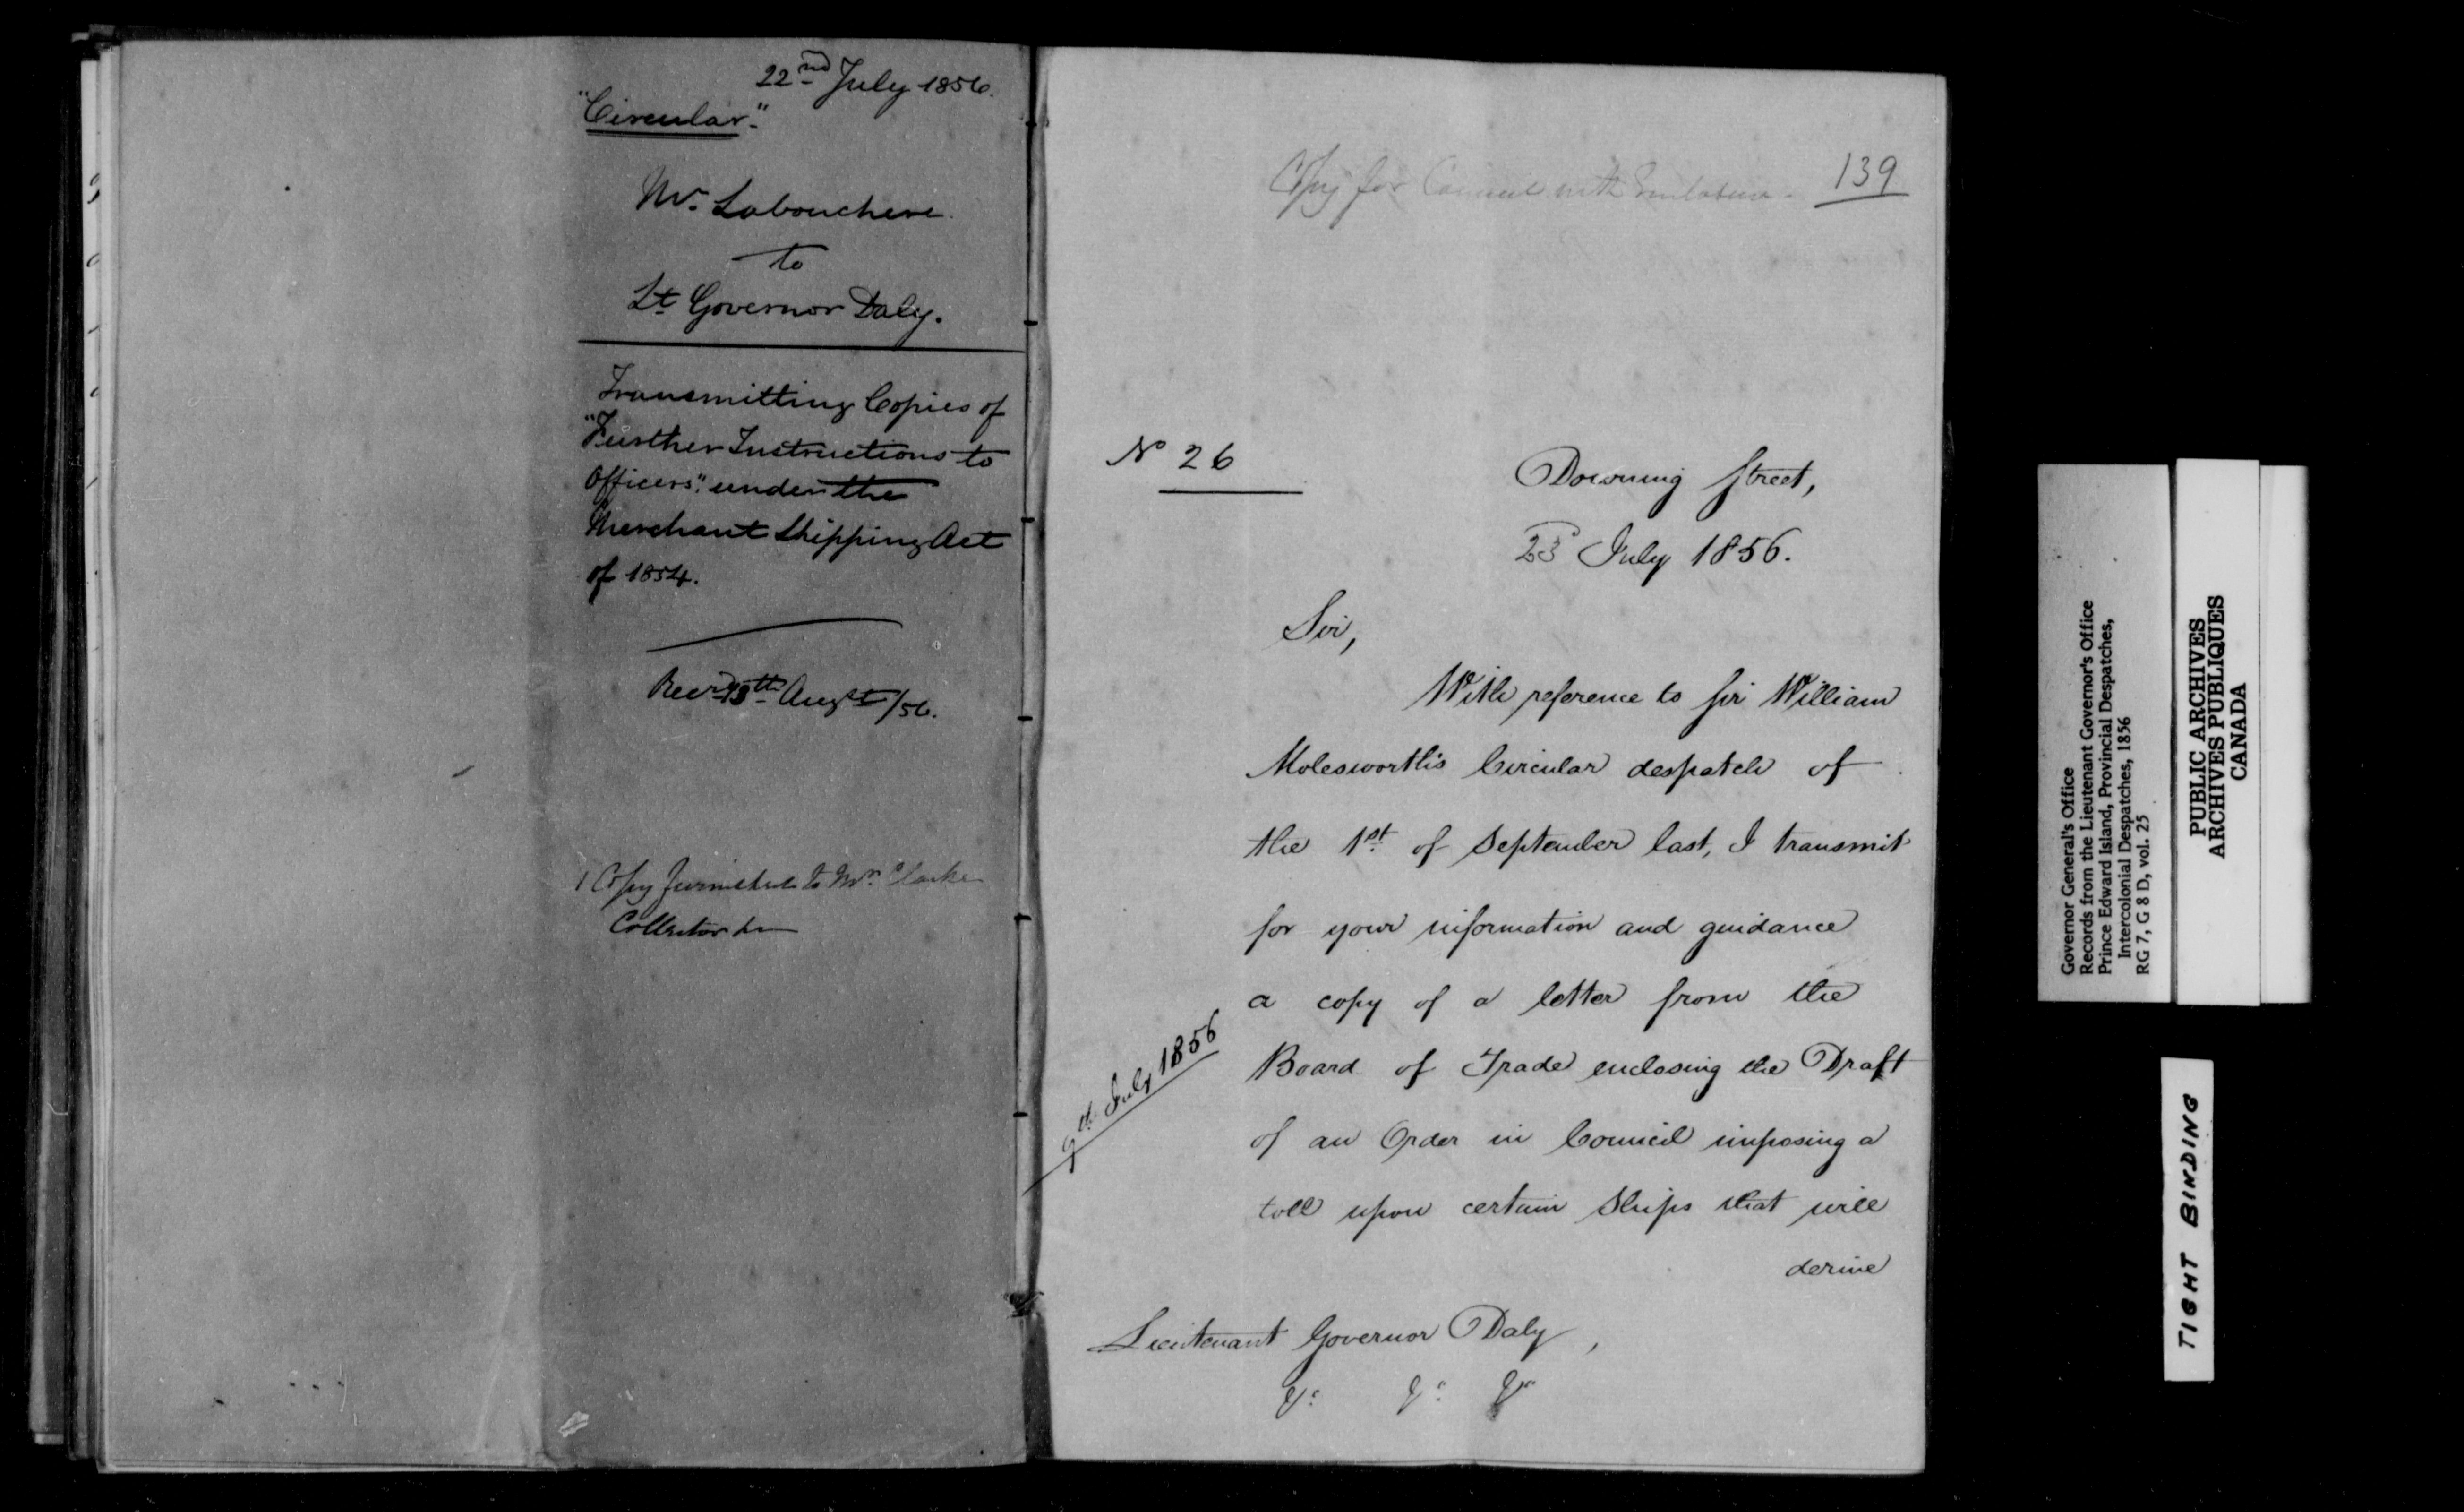 22nd July 1856.
"Circular".
Mr. Labouchere
to
Lt Governor Daly.
Transmitting Copies of
"Further Instructions to
Officers", under the
Merchant Shipping Act
of 1854.
Augst /56.
1 Copy furnished to Mr. Clarke
Collector
Copy for Council with
139
No 26
Downing Street,
23 July 1856.
Sir,
With reference to Sir William
Molesworth's Circular despatch of
the 1st of September last, I transmit
for your information and guidance
a copy of a letter from the
9th July 1856
Board of Trade enclosing the Draft
of an Order in Council imposing a
toll upon certain Ships that will
derive
Lieutenant Governor Daly,
&c &c &c
Governor General's Office
Records from the Lieutenant Governor's Office
Prince Edward Island, Provincial Despatches,
Intercolonial Despatches, 1856
RG 7, G 8 D, vol. 25
PUBLIC ARCHIVES
ARCHIVES PUBLIQUES
CANADA
TIGHT BINDING